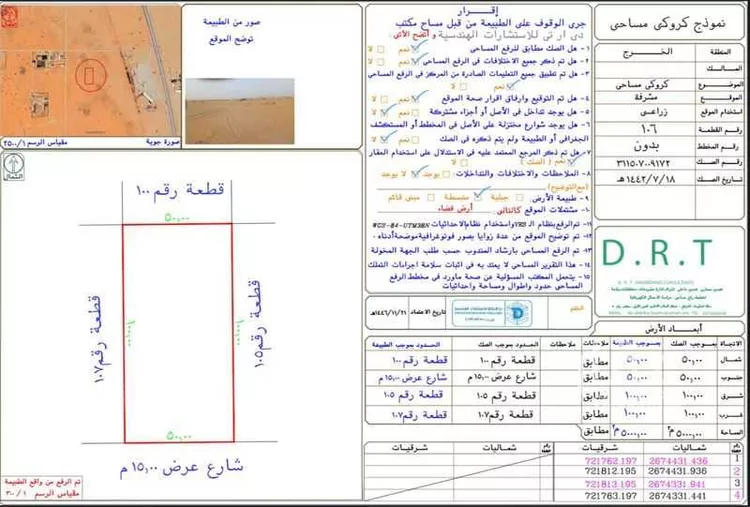 نموذج كروكي مساحي
المنطقة الخرج
المالك
الموضوع كروكي مساحي
الموقع مشرفة
استخدام الموقع زراعي
رقم القطعة ١٠٦
رقم المخطط بدون
رقم الصك ٣١١٥٠٧٠٠٩١٧٢
تاريخ الصك ١٤٤٢/٧/١٨هـ
D.R.T
أبعاد الأرض
الاتجاة بموجب الصك بموجب الطبيعة ملاحظات
شمال ٥٠,٠٠ ٥٠,٠٠ مطابق
جنوب ٥٠,٠٠ ٥٠,٠٠ مطابق
شرق ١٠٠,٠٠ ١٠٠,٠٠ مطابق
غرب ١٠٠,٠٠ ١٠٠,٠٠ مطابق
المساحة ٥٠٠٠,٠٠م٢ ٥٠٠٠,٠٠م٢ مطابق
إقرار
جرى الوقوف على الطبيعة من قبل مساح مكتب
دي ار تي للاستشارات الهندسية و اتضح الأتي
١- هل الصك مطابق للرفع المساحي نعم لا
٢- هل تم ذكر جميع الاختلافات في الرفع المساحي نعم لا
٣- هل تم تطبيق جميع التعليمات الصادرة من المركز في الرفع المساحي
نعم لا
٤- هل تم التوقيع وارفاق اقرار صحة الموقع نعم لا
٥- هل يوجد تداخل في الأصل أو أجزاء مشتركة نعم لا
٦- هل يوجد شوارع مختزلة على الأصل في المخطط أو المستكشف
الجغرافي أو الطبيعة ولم يتم ذكره في الصك نعم لا
٧- هل تم ذكر المرجع المعتمد عليه في الاستدلال على استخدام العقار
نعم ( الصك ) لا
٨- الملاحظات والاختلافات والتداخلات: يوجد لا يوجد
(مع التوضيح)
٩- طبيعة الأرض: جبلية متبسطة مبنى قائم
١٠- مشتملات الموقع كالتالي أرض فضاء
١١- تم الرفع بنظام الـ YES واستخدام نظام الإحداثيات WGS-84-UTM38N
١٢- تم توضيح الموقع من عدة زوايا بصور فوتوغرافية موضحة أدناه.
١٣- تم الرفع المساحي بارشاد المندوب حسب طلب الجهة المخولة
١٤- هذا التقرير المساحي لا يعتد به في اثبات سلامة اجراءات التملك
١٥- يتحمل المكتب المسؤلية عن صحة ماورد في مخطط الرفع
المساحي حدود واطوال ومساحة واحداثيات
الختم
تاريخ الاعتماد ١٤٤٦/١١/٢١هـ
الحدود بموجب الطبيعة الحدود بموجب الصك ملاحظات
قطعة رقم ١٠٠ قطعة رقم ١٠٠
شارع عرض ١٥,٠٠م شارع عرض ١٥,٠٠م
قطعة رقم ١٠٥ قطعة رقم ١٠٥
قطعة رقم ١٠٧ قطعة رقم ١٠٧
شماليات شرقيات شماليات شرقيات
1 2674431.436 721762.197
2 2674431.936 721812.195
3 2674331.941 721813.195
4 2674331.441 721763.197
صور من الطبيعة
توضح الموقع
صورة جوية
مقياس الرسم ٢٥٠٠/١
الشمال
قطعة رقم ١٠٠
٥٠,٠٠
قطعة رقم ١٠٧
١٠٠,٠٠
١٠٠,٠٠
قطعة رقم ١٠٥
٥٠,٠٠
شارع عرض ١٥,٠٠ م
تم الرفع من واقع الطبيعة
مقياس الرسم ٣٠٠/١